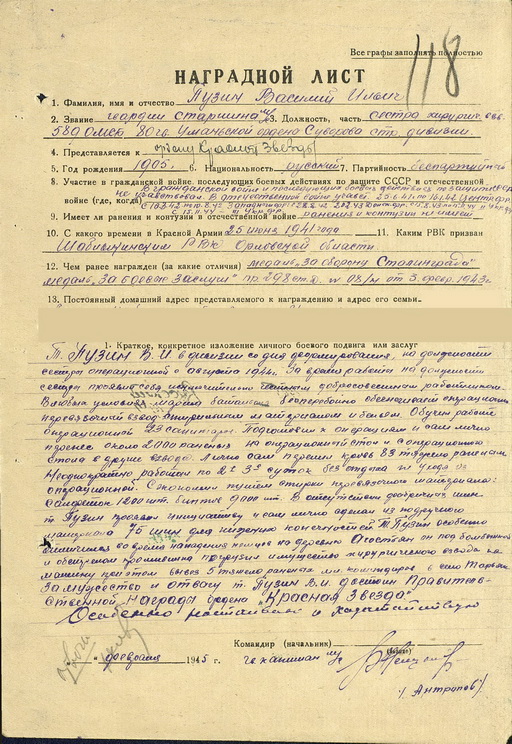 Все графы заполнять полностью
118
НАГРАДНОЙ ЛИСТ
1. Фамилия, имя и отчество Пузин Василий Ильич
2. Звание гвардии старшина м/с 3. Должность, часть сестра хирургич. взв.
580 ОМСБ 80 гв. Уманьской ордена Суворова стр. дивизии.
4. Представляется к ордену Красной Звезды
5. Год рождения 1905. 6. Национальность русский 7. Партийность беспартийный
8. Участие в гражданской войне, последующих боевых действиях по защите СССР и отечественной
войне (где, когда)
9. Имеет ли ранения и контузии в отечественной войне ранения и контузии не имеет
10. С какого времени в Красной Армии 25 июня 1941 года 11. Каким РВК призван
Шаблыкинским РВК Орловской области
12. Чем ранее награжден (за какие отличия) медаль „За оборону Сталинграда"
медаль „За боевые заслуги" пр. 298 ст.д. № 08/н от 3 февр. 1943г
13. Постоянный домашний адрес представляемого к награждению и адрес его семьи
1. Краткое, конкретное изложение личного боевого подвига или заслуг
Т. Пузин В.И. в дивизии со дня формирования, на должности
сестры операционной с августа 1944г. За время работы на должности
сестры проявил себя исключительно добросовестным работником.
В любых условиях бесперебойно обеспечивает операционно
перевязочный взвод стерильным материалом и бельем. Обучил работе
операционной 23 санитары. Подготовил к операциям и сам лично
перенес около 2000 раненых на операционный стол и с операционного
стола в другие взвода. Лично сам перелил кровь 83 тяжело раненым
Неоднократно работал по 2-3 суток без отдыха не уходя из
операционной. Сэкономил путем стирки перевязочного материала:
салфеток 1200 шт. бинтов 9000 шт. В отсутствии фабричных шин
т. Пузин проявил инициативу и сам лично сделал из подручного
материала 75 шин для нижних конечностей. Т. Пузин особенно
отличился во время нападения немцев на деревню он под
и обстрелом противника погрузил имущество хирургического взвода на
машину при этом вывез 5 тяжело раненых
За мужество и отвагу т. Пузин В.И. достоин Правитель-
ственной награды ордена „Красная Звезда"
Командир (начальник)
" февраля 1945 г. гв. капитан м/с
/Антропов/